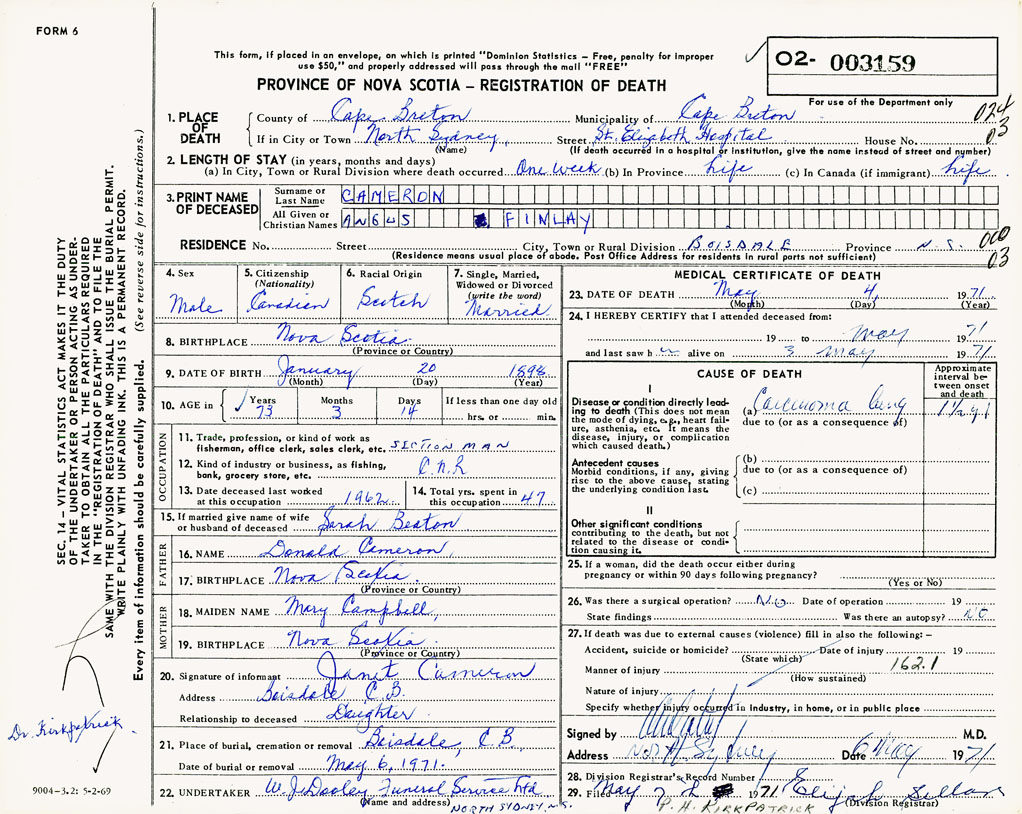 FORM 6
This form, if placed in an envelope, on which is printed "Dominion Statistics – Free, penalty for improper
use $50," and properly addressed will pass through the mail "FREE"
PROVINCE OF NOVA SCOTIA – REGISTRATION OF DEATH
02- 003159
For use of the Department only
024
03
1. PLACE OF DEATH
County of Cape Breton Municipality of Cape Breton
If in City or Town North Sydney Street St. Elizabeth Hospital House No.
(Name) (If death occurred in a hospital or institution, give the name instead of street and number)
2. LENGTH OF STAY (in years, months and days)
(a) In City, Town or Rural Division where death occurred One Week (b) In Province Life (c) In Canada (if immigrant) Life
3. PRINT NAME OF DECEASED
Surname or Last Name CAMERON
All Given or Christian Names ANGUS FINLAY
RESIDENCE No. Street City, Town or Rural Division BOISDALE Province N.S.
(Residence means usual place of abode. Post Office Address for residents in rural parts not sufficient)
000
03
4. Sex
Male
5. Citizenship
(Nationality)
Canadian
6. Racial Origin
Scotch
7. Single, Married,
Widowed or Divorced
(write the word)
Married
8. BIRTHPLACE Nova Scotia
(Province or Country)
9. DATE OF BIRTH January 20 1898
(Month) (Day) (Year)
10. AGE in Years Months Days If less than one day old
73 3 14 hrs. or min.
OCCUPATION
11. Trade, profession, or kind of work as
fisherman, office clerk, sales clerk, etc. SECTION MAN
12. Kind of industry or business, as fishing,
bank, grocery store, etc. C.N.R
13. Date deceased last worked
at this occupation 1962
14. Total yrs. spent in
this occupation 47
15. If married give name of wife
or husband of deceased Sarah Beaton
FATHER
16. NAME Donald Cameron
17. BIRTHPLACE Nova Scotia
(Province or Country)
MOTHER
18. MAIDEN NAME Mary Campbell
19. BIRTHPLACE Nova Scotia
(Province or Country)
20. Signature of informant Janet Cameron
Address Boisdale C.B.
Relationship to deceased Daughter
21. Place of burial, cremation or removal Boisdale, C.B.
Date of burial or removal May 6, 1971.
22. UNDERTAKER W. J. Dooley Funeral Service Ltd
(Name and address) NORTH SYDNEY N.S.
MEDICAL CERTIFICATE OF DEATH
23. DATE OF DEATH May 4, 1971
(Month) (Day) (Year)
24. I HEREBY CERTIFY that I attended deceased from:
19 to May 1971
and last saw h alive on 3 May 1971
CAUSE OF DEATH
Approximate
interval be-
tween onset
and death
I
Disease or condition directly lead-
ing to death (This does not mean
the mode of dying, e.g., heart fail-
ure, asthenia, etc. It means the
disease, injury, or complication
which caused death.)
(a) Carcinoma lung 1 1/2 y
due to (or as a consequence of)
Antecedent causes
Morbid conditions, if any, giving
rise to the above cause, stating
the underlying condition last.
(b)
due to (or as a consequence of)
(c)
II
Other significant conditions
contributing to the death, but not
related to the disease or condi-
tion causing it.
25. If a woman, did the death occur either during
pregnancy or within 90 days following pregnancy?
(Yes or No)
26. Was there a surgical operation? No Date of operation 19
State findings Was there an autopsy? NO
27. If death was due to external causes (violence) fill in also the following: –
Accident, suicide or homicide? Date of injury 19
(State which)
162.1
Manner of injury
(How sustained)
Nature of injury
Specify whether injury occurred in industry, in home, or in public place
Signed by M.D.
Address North Sydney Date 6 May 1971
28. Division Registrar's Record Number
29. Filed May 7 1971
P. H. KIRKPATRICK (Division Registrar)
SEC. 14 – VITAL STATISTICS ACT MAKES IT THE DUTY
OF THE UNDERTAKER OR PERSON ACTING AS UNDER-
TAKER TO OBTAIN ALL THE PARTICULARS REQUIRED
IN THE "REGISTRATION OF DEATH" AND TO FILE THE
SAME WITH THE DIVISION REGISTRAR WHO SHALL ISSUE THE BURIAL PERMIT.
WRITE PLAINLY WITH UNFADING INK. THIS IS A PERMANENT RECORD.
Every item of information should be carefully supplied. (See reverse side for instructions.)
Dr. Kirkpatrick
9004-3.2: 5-2-69